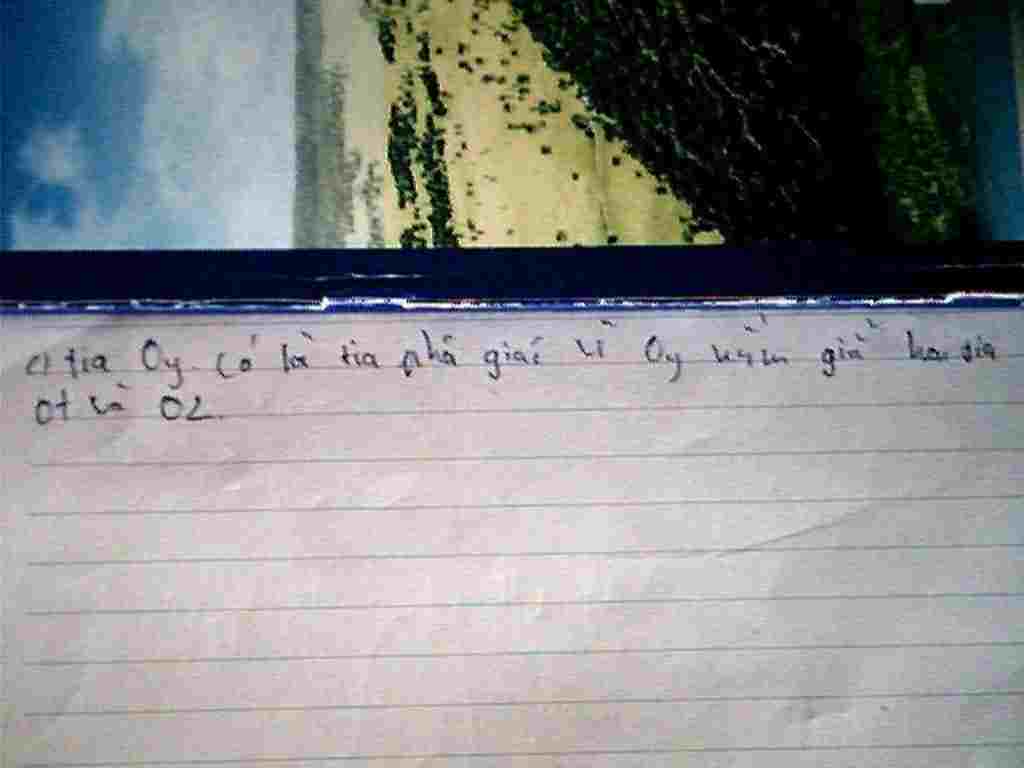 c) tia Oy có là tia phâ giác vì Oy nằm giữ hai tia
Ot và Oz.